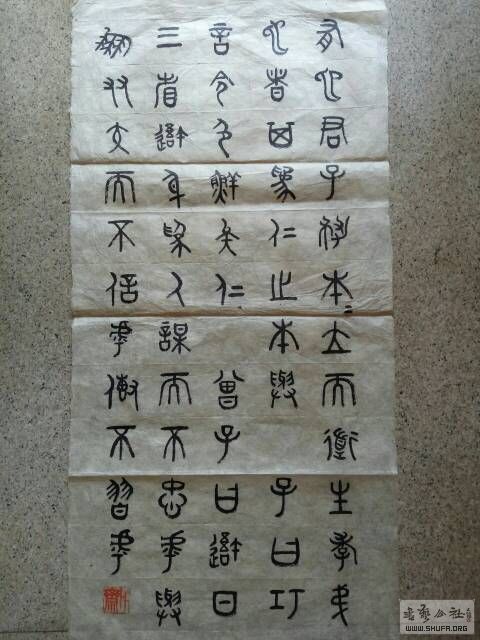 有也君子務本=立而道生孝弟
也者其為仁之本與 子曰巧
言令色鮮矣仁 曾子曰吾日
三省吾身為人謀而不忠乎與
朋友交而不信乎傳不習乎
書藝公社
WWW.SHUFA.ORG